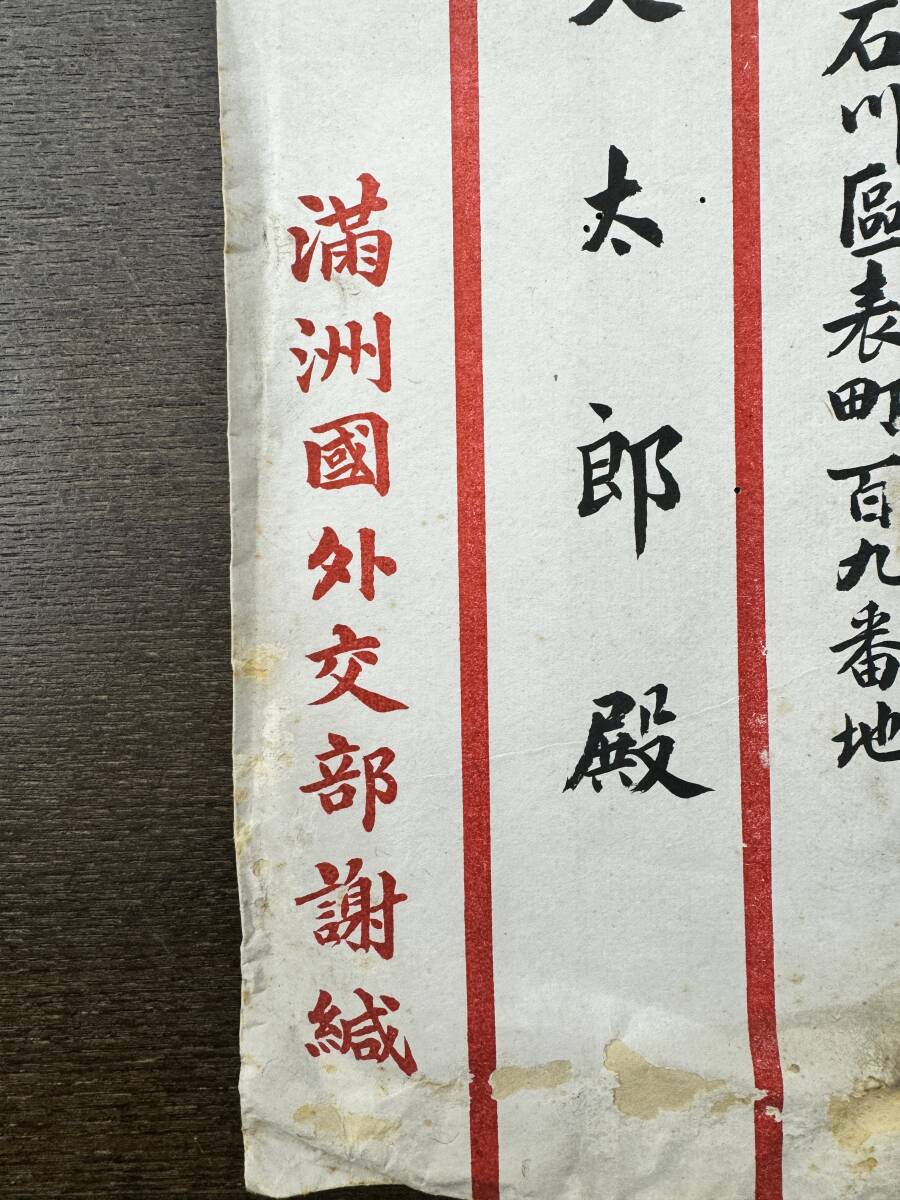 石川區表町百九番地
太郎殿
滿洲國外交部謝緘